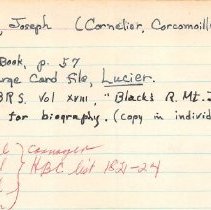 , Joseph (Cornelier, Corcomoill
Book, p. 57
rge Card File, Lucier.
BRS. Vol XVIII, "Blacks R. Mt. J
for biography. (copy in individ
HBC list 1821-24